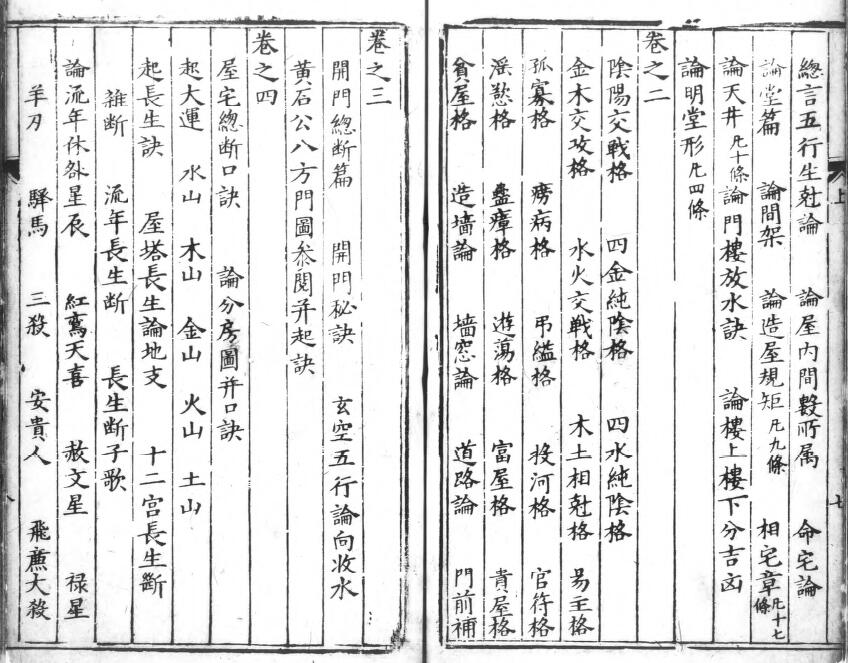 總言五行生尅論 論屋内間數所属 命宅論
論堂篇 論間架 論造屋規矩凢九條 相宅章凢十七條
論天井凢十條 論門樓放水訣 論樓上樓下分吉凶
論明堂形凢四條
卷之二
陰陽交戰格 四金純陰格 四水純陰格
金木交攻格 水火交戰格 木土相尅格 易主格
孤寡格 痨病格 弔縊格 投河格 官符格
滛慾格 蠱瘴格 遊蕩格 富屋格 貴屋格
貧屋格 造墻論 墻窓論 道路論 門前補
上
七
卷之三
開門總断篇 開門秘訣 玄空五行論向收水
黄石公八方門圖参閲并起訣
卷之四
屋宅總断口訣 論分房圖并口訣
起大運 水山 木山 金山 火山 土山
起長生訣 屋塔長生論地支 十二宫長生斷
雜断 流年長生断 長生断子歌
論流年休咎星辰 紅鸞天喜 赦文星 禄星
羊刃 驛馬 三殺 安貴人 飛廉大殺